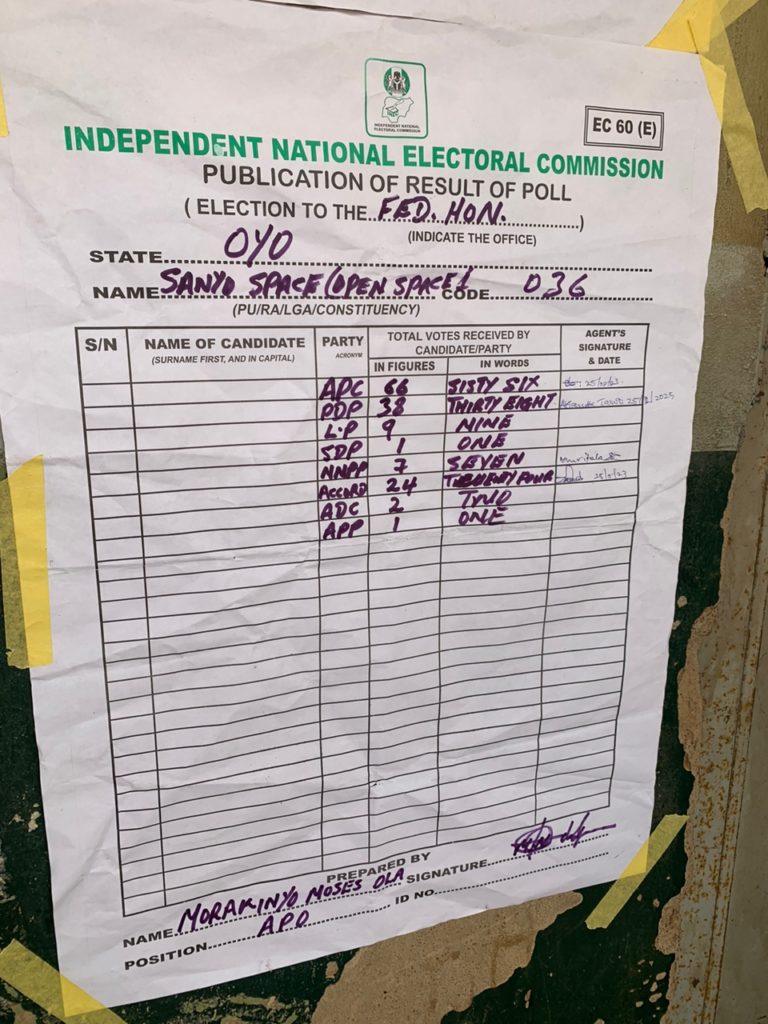 INDEPENDENT NATIONAL
ELECTORAL COMMISSION
EC 60 (E)
INDEPENDENT NATIONAL ELECTORAL COMMISSION
PUBLICATION OF RESULT OF POLL
( ELECTION TO THE...FED. HON. ...............)
(INDICATE THE OFFICE)
STATE.........OYO.........
NAME SANYO SPACE (OPEN SPACE) CODE......036.........
(PU/RA/LGA/CONSTITUENCY)
S/N NAME OF CANDIDATE (SURNAME FIRST, AND IN CAPITAL) PARTY ACRONYM TOTAL VOTES RECEIVED BY CANDIDATE/PARTY AGENT'S SIGNATURE & DATE
IN FIGURES IN WORDS
APC 66 SISTY SIX 25/02/23
PDP 38 THIRTY EIGHT
L.P 9 NINE
SDP 1 ONE
NNPP 7 SEVEN
ACCORD 24
ADC 2 TWO
APP 1 ONE
PREPARED BY
NAME MORAKINYO MOSES OLA SIGNATURE..........
POSITION.........APO......... ID NO..........